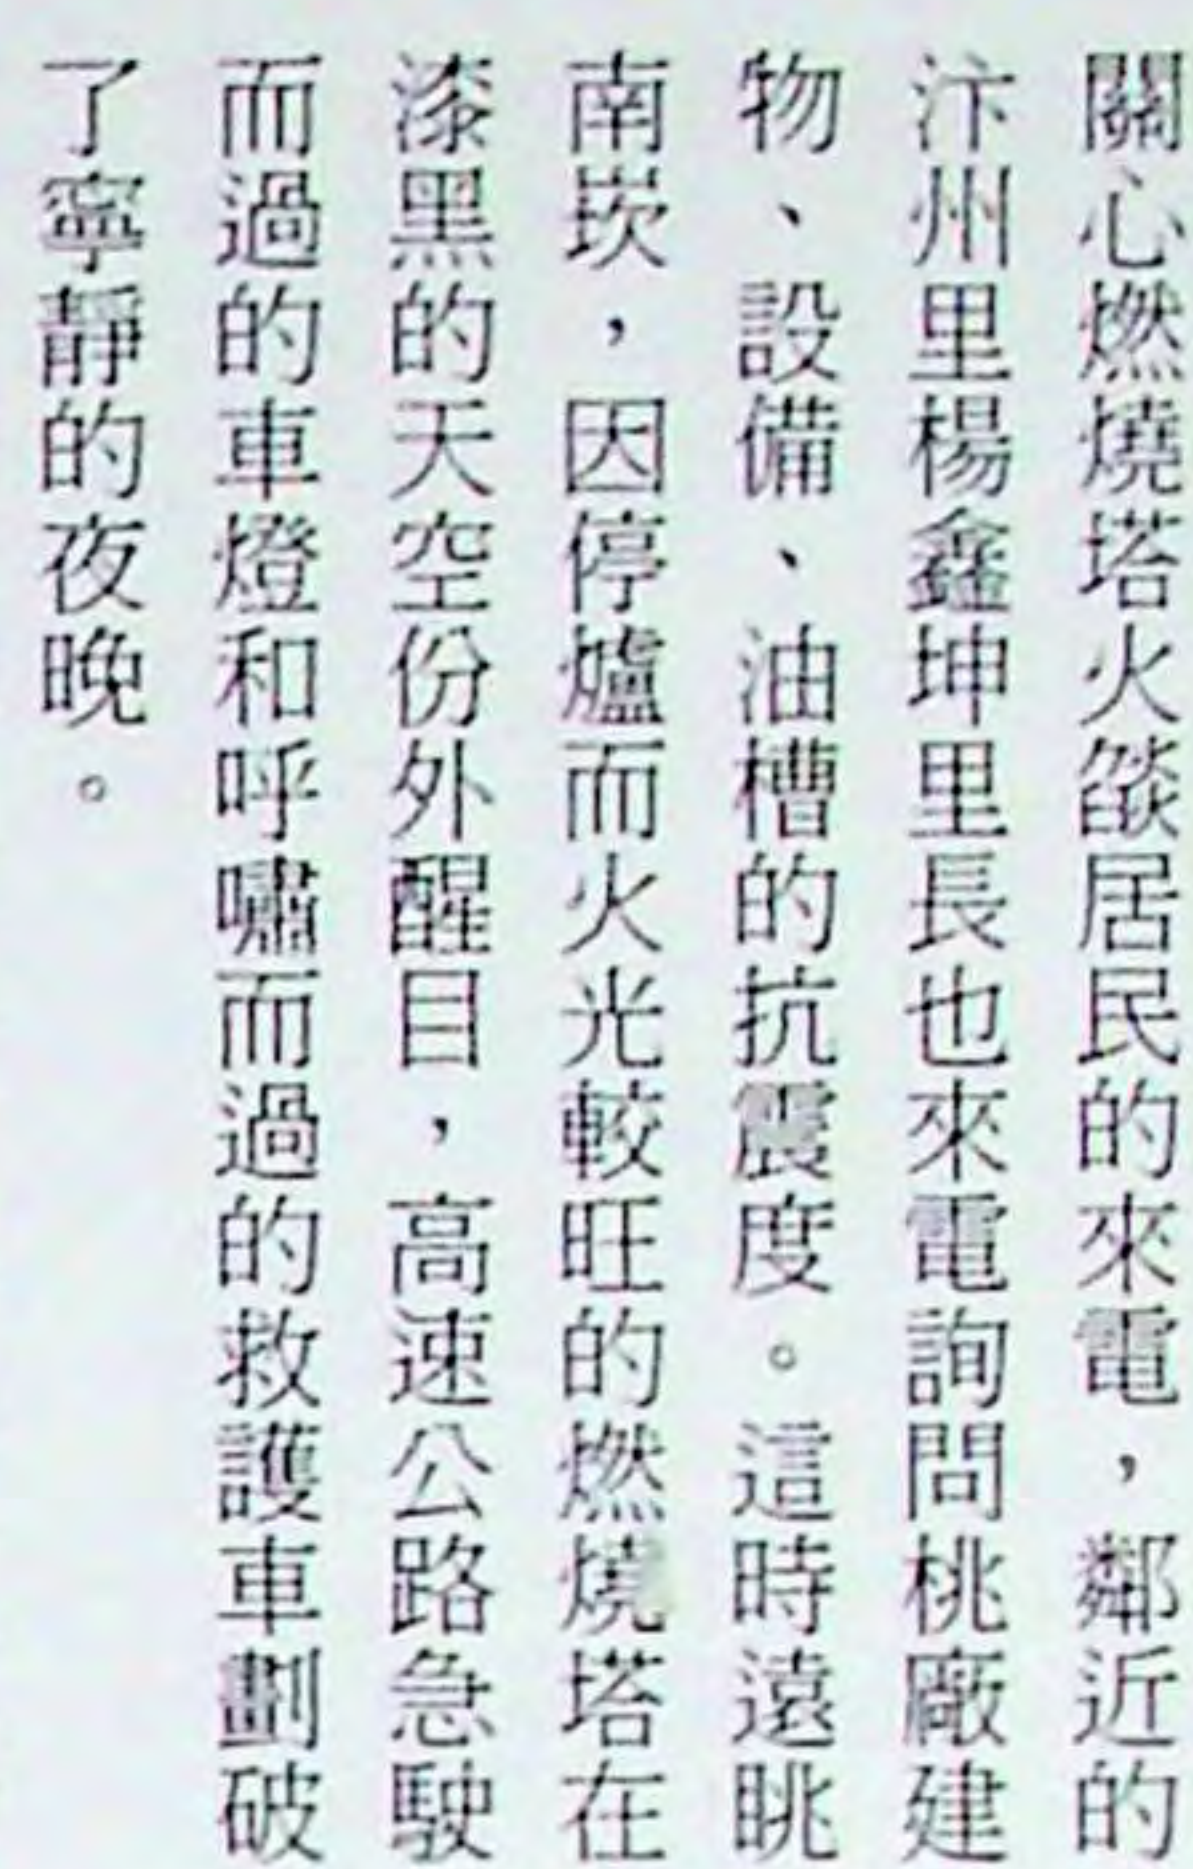 關心燃燒塔火燄居民的來電，鄰近的
汴州里楊鑫坤里長也來電詢問桃廠建
物、設備、油槽的抗震度。這時遠眺
南崁，因停爐而火光較旺的燃燒塔在
漆黑的天空份外醒目，高速公路急駛
而過的車燈和呼嘯而過的救護車劃破
了寧靜的夜晚。